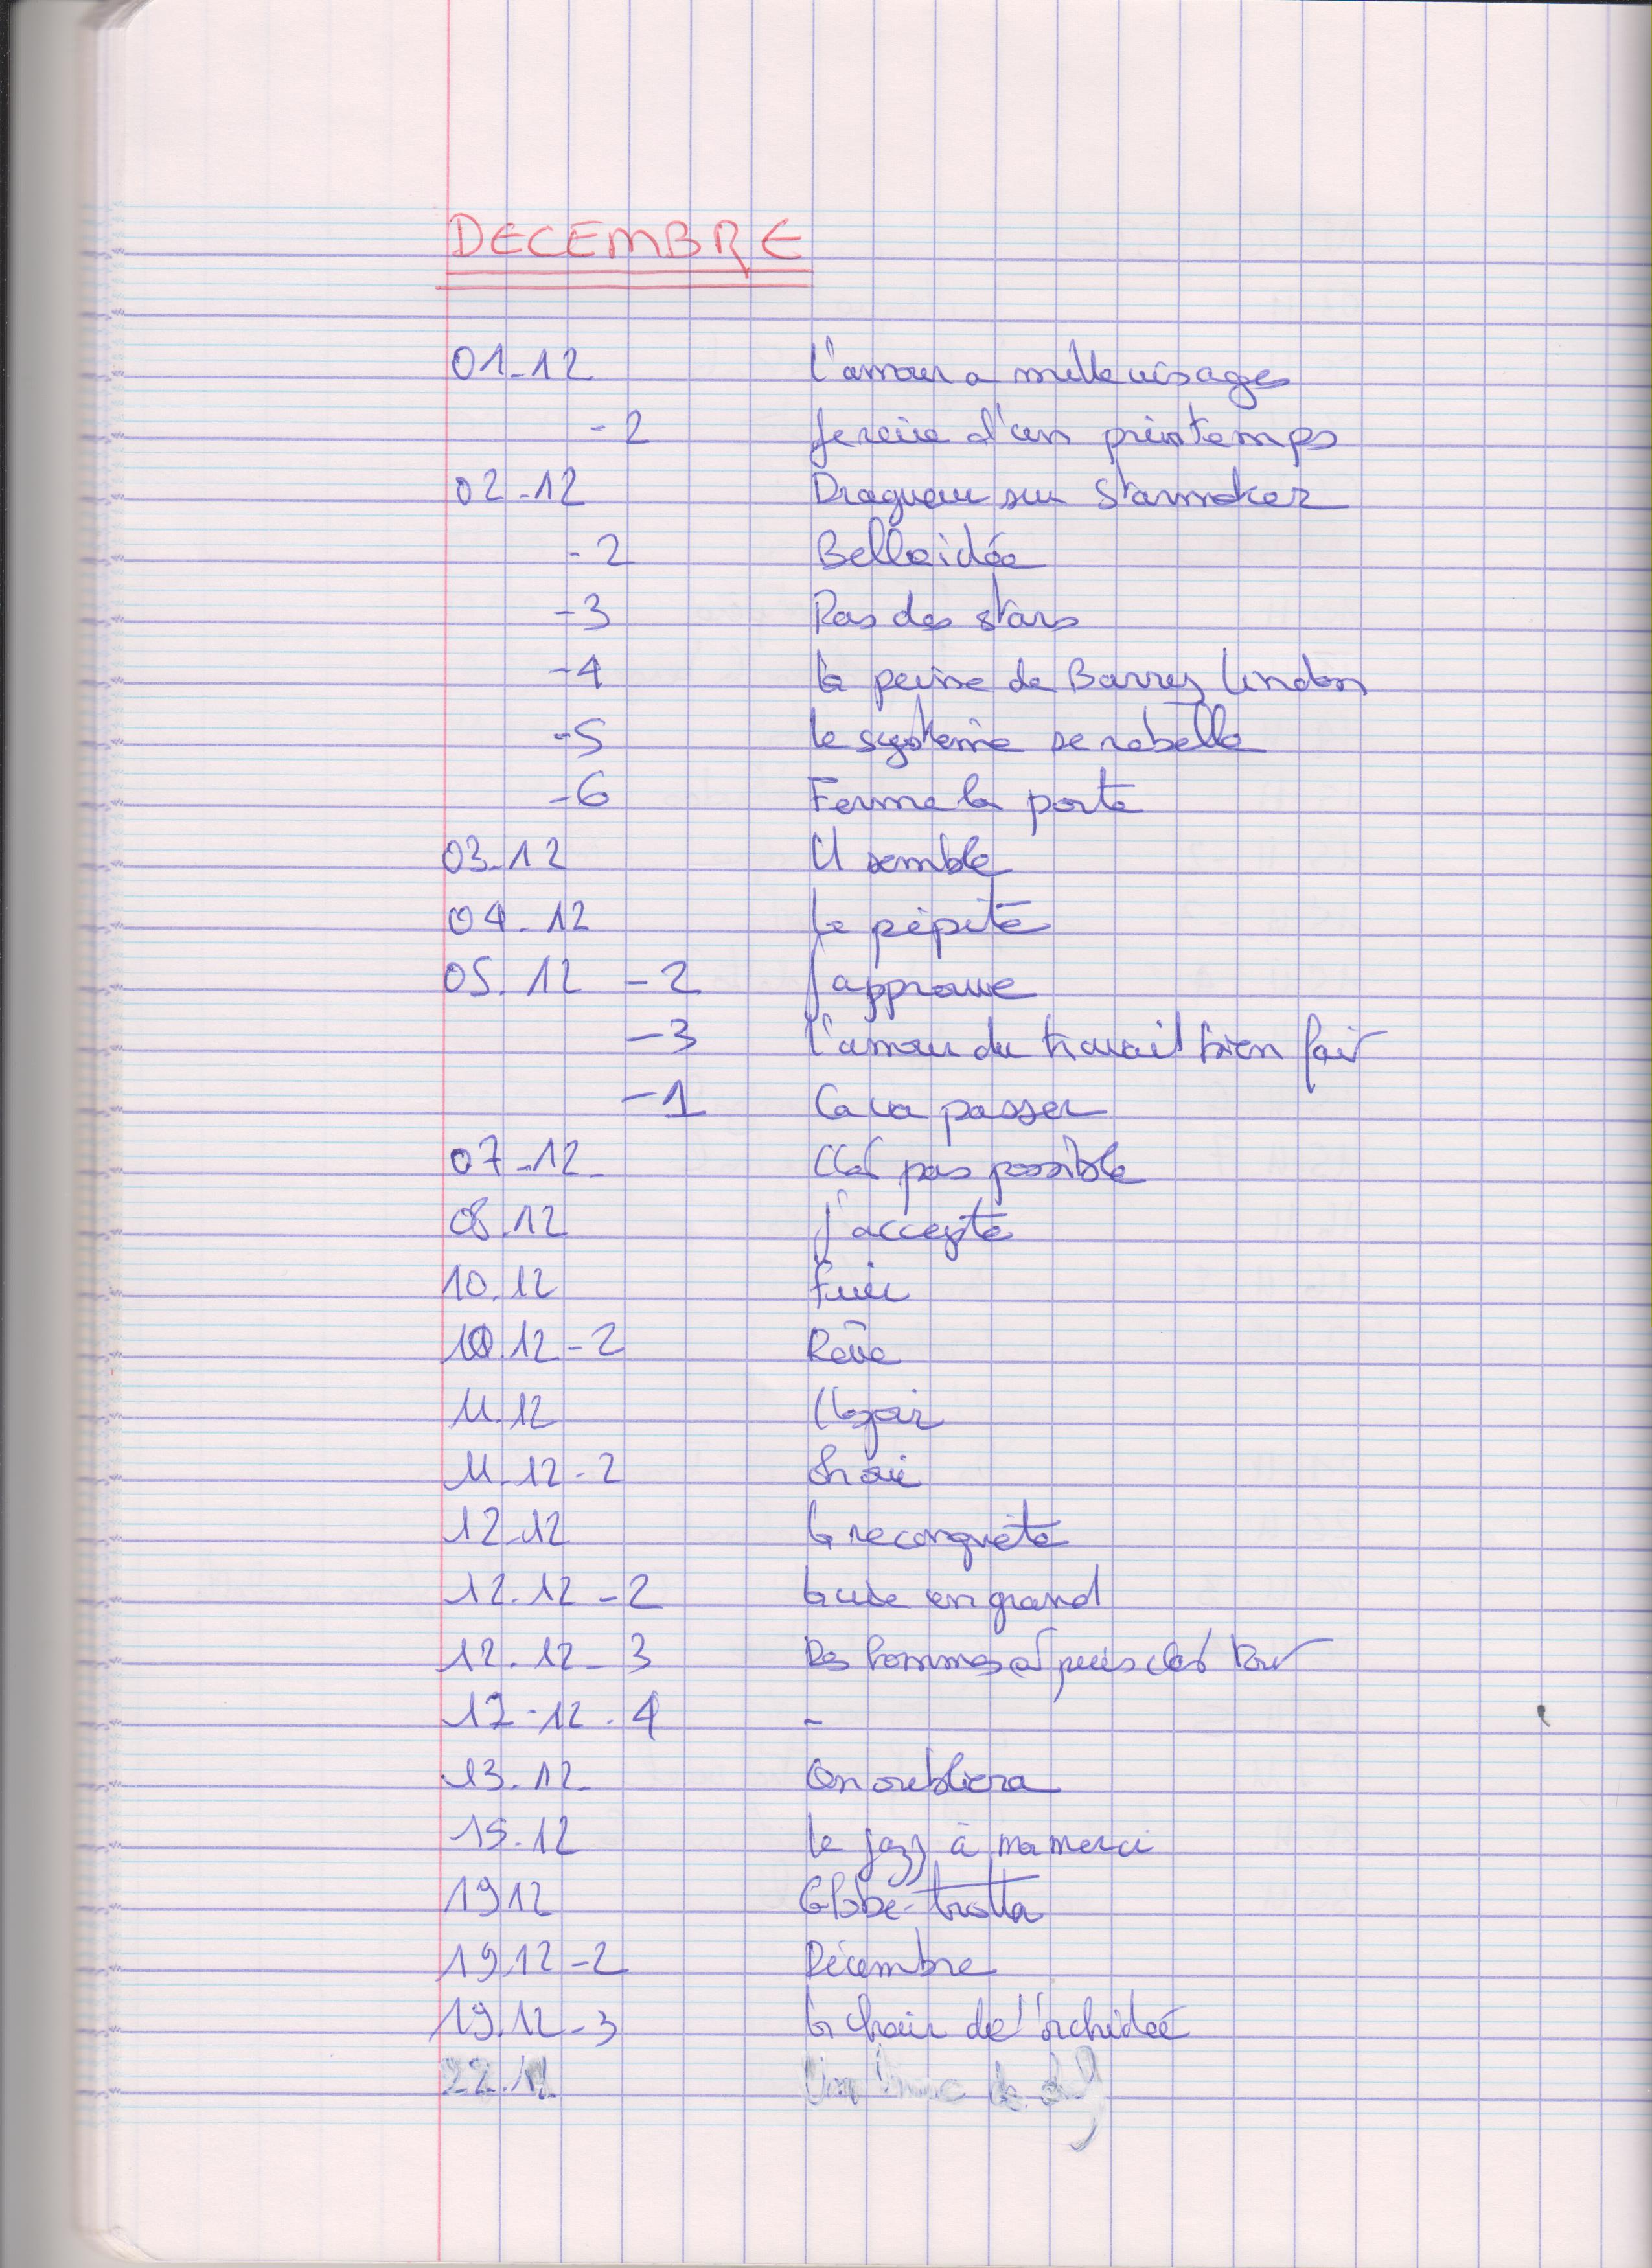 DECEMBRE
01-12 l'amour a mille visages
-2 Je rêve d'un printemps
02-12 Dragueur sur Starmaker
-2 Belle idée
-3 Pas des stars
-4 la peine de Barry Lindon
-5 le système se rebelle
-6 Ferme la porte
03.12 Il semble
04.12 Je pépite
05.12 -2 J'approuve
-3 l'amour du travail bien fait
-1 Ca va passer
07-12- C'est pas possible
08.12 J'accepte
10.12 Fuir
10.12-2 Rêve
11.12
11.12-2
12-12 la reconquête
12.12-2 en grand
12.12-3 Des hommes et puis c'est tout
12-12.4 -
13.12 On oubliera
15.12 le jazz à ma merci
19 12 Globe-trotter
19.12-2 Décembre
19.12-3 la chair de l'orchidée
22.12